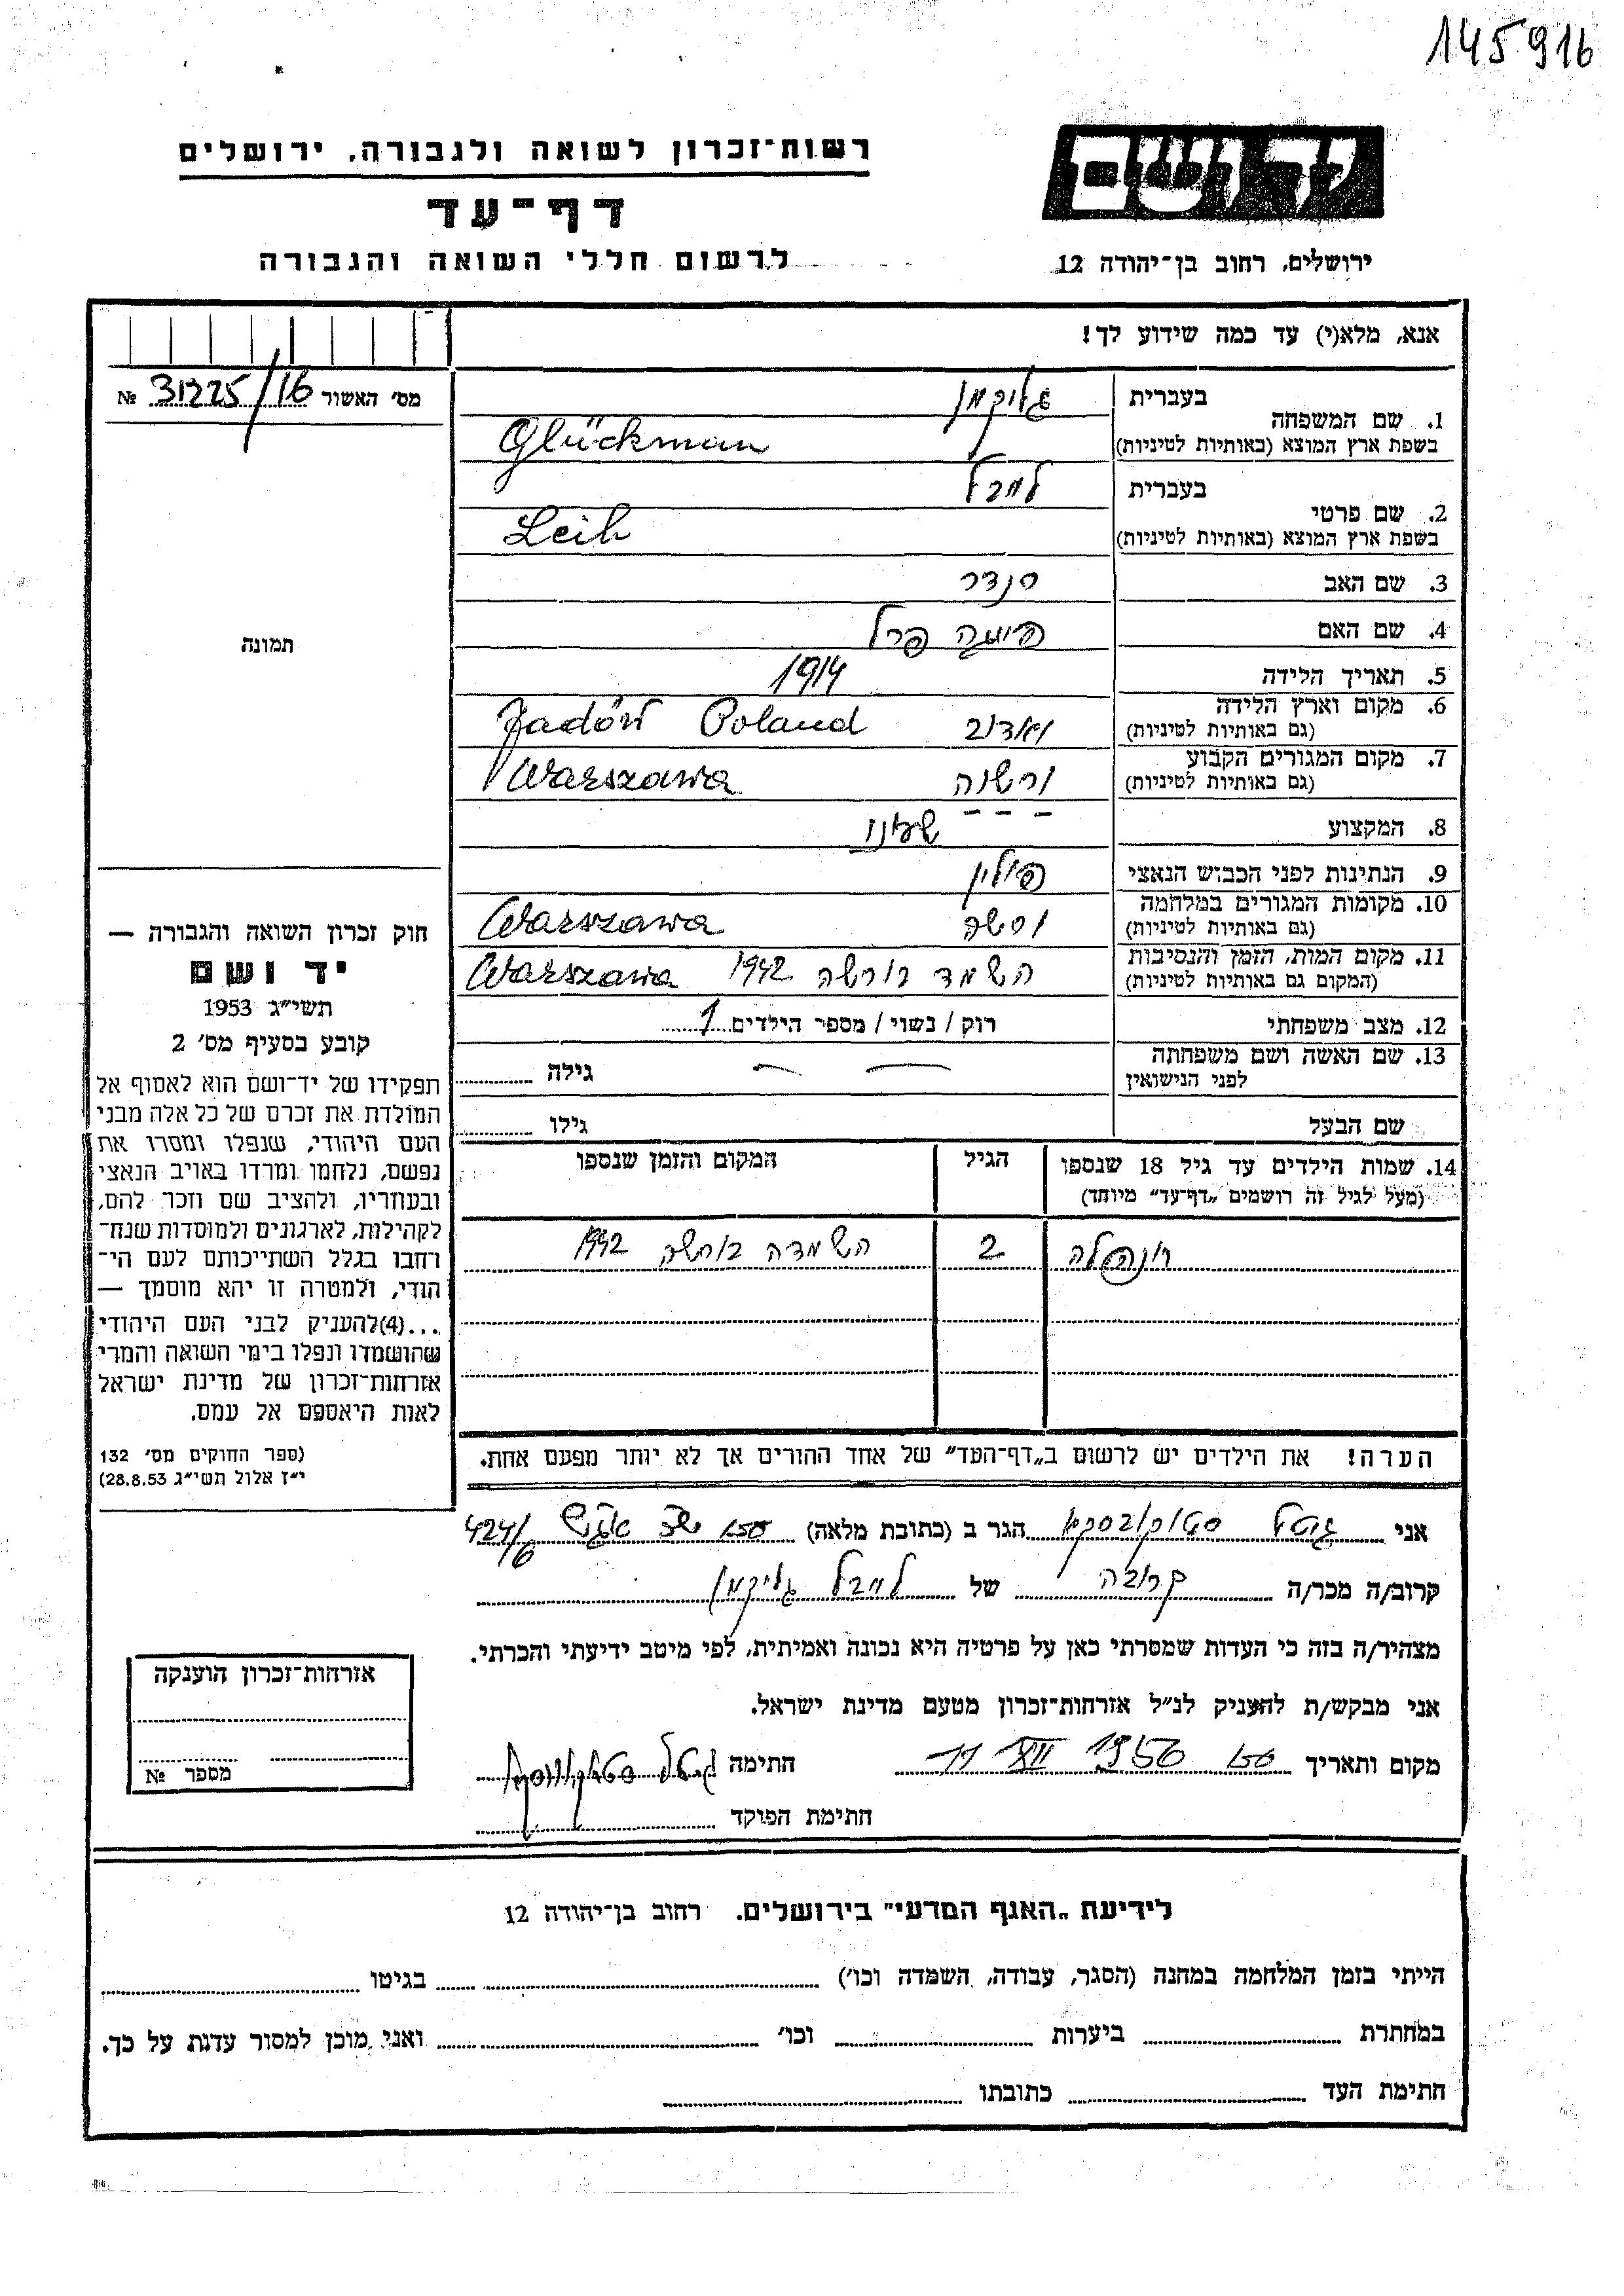 145916
רשות-זכרון לשואה ולגבורה, ירושלים
יד ושם
דף-עד
לרשום חללי השואה והגבורה
ירושלים, רחוב בן-יהודה 12
אנא, מלא(י) עד כמה שידוע לך!
מס' האשור 31225/16 №
1. שם המשפחה
בעברית גליקמן
בשפת ארץ המוצא (באותיות לטיניות) Glückman
2. שם פרטי
בעברית לייבל
בשפת ארץ המוצא (באותיות לטיניות) Leib
3. שם האב סנדר
4. שם האם פרל
5. תאריך הלידה 1914
6. מקום וארץ הלידה Jadów Poland
(גם באותיות לטיניות)
7. מקום המגורים הקבוע ורשה Warszawa
(גם באותיות לטיניות)
8. המקצוע ---
9. הנתינות לפני הכבוש הנאצי פולין
10. מקומות המגורים במלחמה ורשה Warszawa
(גם באותיות לטיניות)
11. מקום המות, הזמן והנסיבות השמד בורשה 1942 Warszawa
(המקום גם באותיות לטיניות)
12. מצב משפחתי רוק / נשוי / מספר הילדים 1
13. שם האשה ושם משפחתה גילה
לפני הנישואין
שם הבעל גילו
14. שמות הילדים עד גיל 18 שנספו הגיל המקום והזמן שנספו
(מעל לגיל זה רושמים "דף-עד" מיוחד)
2 השמדה בורשה 1942
הערה! את הילדים יש לרשום ב"דף-העד" של אחד ההורים אך לא יותר מפעם אחת.
תמונה
חוק זכרון השואה והגבורה —
יד ושם
תשי"ג 1953
קובע בסעיף מס' 2
תפקידו של יד-ושם הוא לאסוף אל
המולדת את זכרם של כל אלה מבני
העם היהודי, שנפלו ומסרו את
נפשם, נלחמו ומרדו באויב הנאצי
ובעוזריו, ולהציב שם וזכר להם,
לקהילות, לארגונים ולמוסדות שנח-
רבו בגלל השתייכותם לעם הי-
הודי, ולמטרה זו יהא מוסמך —
...(4)להעניק לבני העם היהודי
שהושמדו ונפלו בימי השואה והמרי
אזרחות-זכרון של מדינת ישראל
לאות היאספם אל עמם.
(ספר החוקים מס' 132
י"ז אלול תשי"ג 28.8.53)
אני גיטל הגר ב (כתובת מלאה) 424/6
קרוב/ה מכר/ה קרובה של לייבל גליקמן
מצהיר/ה בזה כי העדות שמסרתי כאן על פרטיה היא נכונה ואמיתית, לפי מיטב ידיעתי והכרתי.
אני מבקש/ת להעניק לנ"ל אזרחות-זכרון מטעם מדינת ישראל.
מקום ותאריך 11 XII 1956 חתימה גיטל
חתימת הפוקד
אזרחות-זכרון הוענקה
מספר №
לידיעת "האגף המדעי" בירושלים, רחוב בן-יהודה 12
הייתי בזמן המלחמה במחנה (הסגר, עבודה, השמדה וכו') בגיטו
במחתרת ביערות וכו' ואני מוכן למסור עדות על כך.
חתימת העד כתובתו